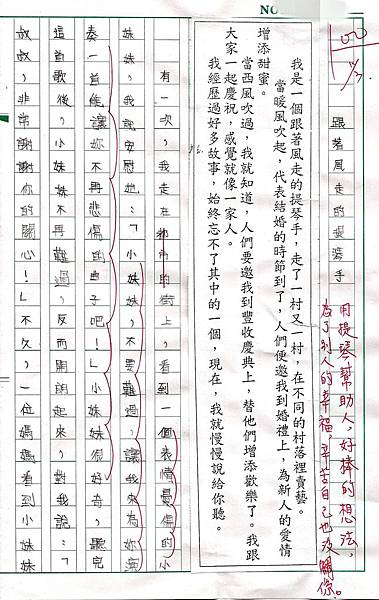 NO.
100
用提琴幫助人，好棒的想法，
為了別人的幸福，辛苦自己也沒關係。
跟著風走的提琴手
我是一個跟著風走的提琴手，走了一村又一村，在不同的村落裡賣藝。
當暖風吹起，代表結婚的時節到了，人們便邀我到婚禮上，為新人的愛情
增添甜蜜。
當西風吹過，我就知道，人們要邀我到豐收慶典上，替他們增添歡樂了。我跟
大家一起慶祝，感覺就像一家人。
我經歷過好多故事，始終忘不了其中的一個，現在，我就慢慢說給你聽。
有一次，我走在都市的街上，看到一個表情憂傷的小
妹妹，我說安慰她：「小妹妹，不要難過，讓我來為妳演
奏一首能讓妳不再悲傷的曲子吧！」小妹妹很好奇，聽完
這首歌後，小妹妹不再難過，反而開朗起來，對我說：「
叔叔，非常謝謝你的關心！」不久，一位媽媽看到小妹妹